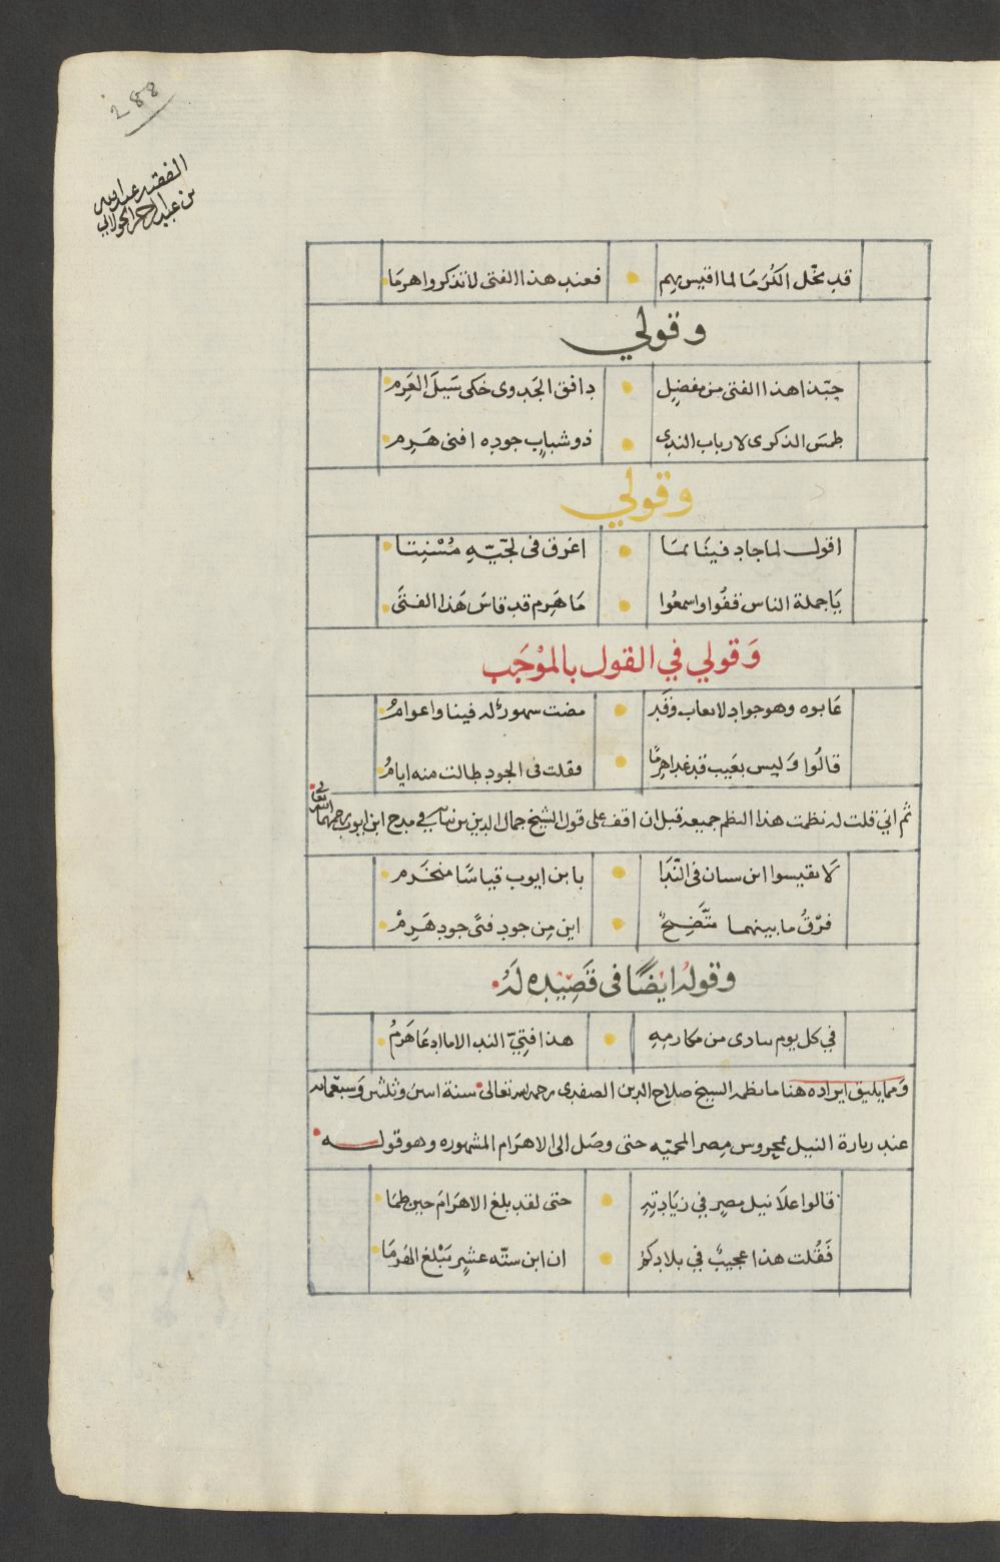 288
الفقير عبد الله
بن عبد الرحمن الخولاني
قد بخّل الكُرَمَا لما اقيس بهم • فعند هذا الفتى لا تذكروا هرمَا
وقولي
حبّذا هذا الفتى من مفضِل • دافق الجَدوى حَكى سَيلَ العَرِم
طمسَ الذكرى لارباب الندى • ذو شبابٍ جوده افنى هَرِم
وقولي
اقول لما جاد فينَا بمَا • اغرق فى لجّيّه مُسْنِتا
يَا جملة الناس قفُوا واسمعُوا • مَا هَرِم قد قاسَ هَذا الفتَى
وَقولي في القول بالموْجَب
عَابوه وهو جواد لا يعاب وقَد • مضت شهورٌ له فينا واعوامُ
قالُوا وَليس بعَيب قد غدا هرِمًا • فقلت فى الجود طالت منه ايامُ
ثم اني قلت له نظمت هذا النظم جميعه قبل ان اقف على قول الشيخ جمال الدين بن نباته في مدح ابن ايوب رحمهما الله تعالى
لَا تقيسوا ابن سنان فى النّدَا • بابن ايوب قياسًا منخَرم
فرْقُ ما بينهما متَّضِحٌ • اين مِن جود فتًى جود هَرِمْ
وقوله ايضًا فى قَصِيْده لَهُ
في كل يوم ينادى من مكارمِهِ • هذا فتِيّ الندا لا ما ادعَا هَرمُ
وَمما يليق ايراده هنا ما نظمه الشيخ صلاح الدين الصفدى رحمه الله تعالى سنة اثنين وثلثين وَسبعمائه
عند زيارة النيل بمحروس مِصر المحميّه حتى وصَل الى الاهرَام المشهوره وهو قوله
قالوا علَا نيل مصرٍ في زيَادتِهِ • حتى لقد بلغ الاهرَامَ حين طمَا
فَقُلت هذا عجيبٌ في بلادكمُ • ان ابن ستّه عشرٍ يَبْلغ الهَرمَا